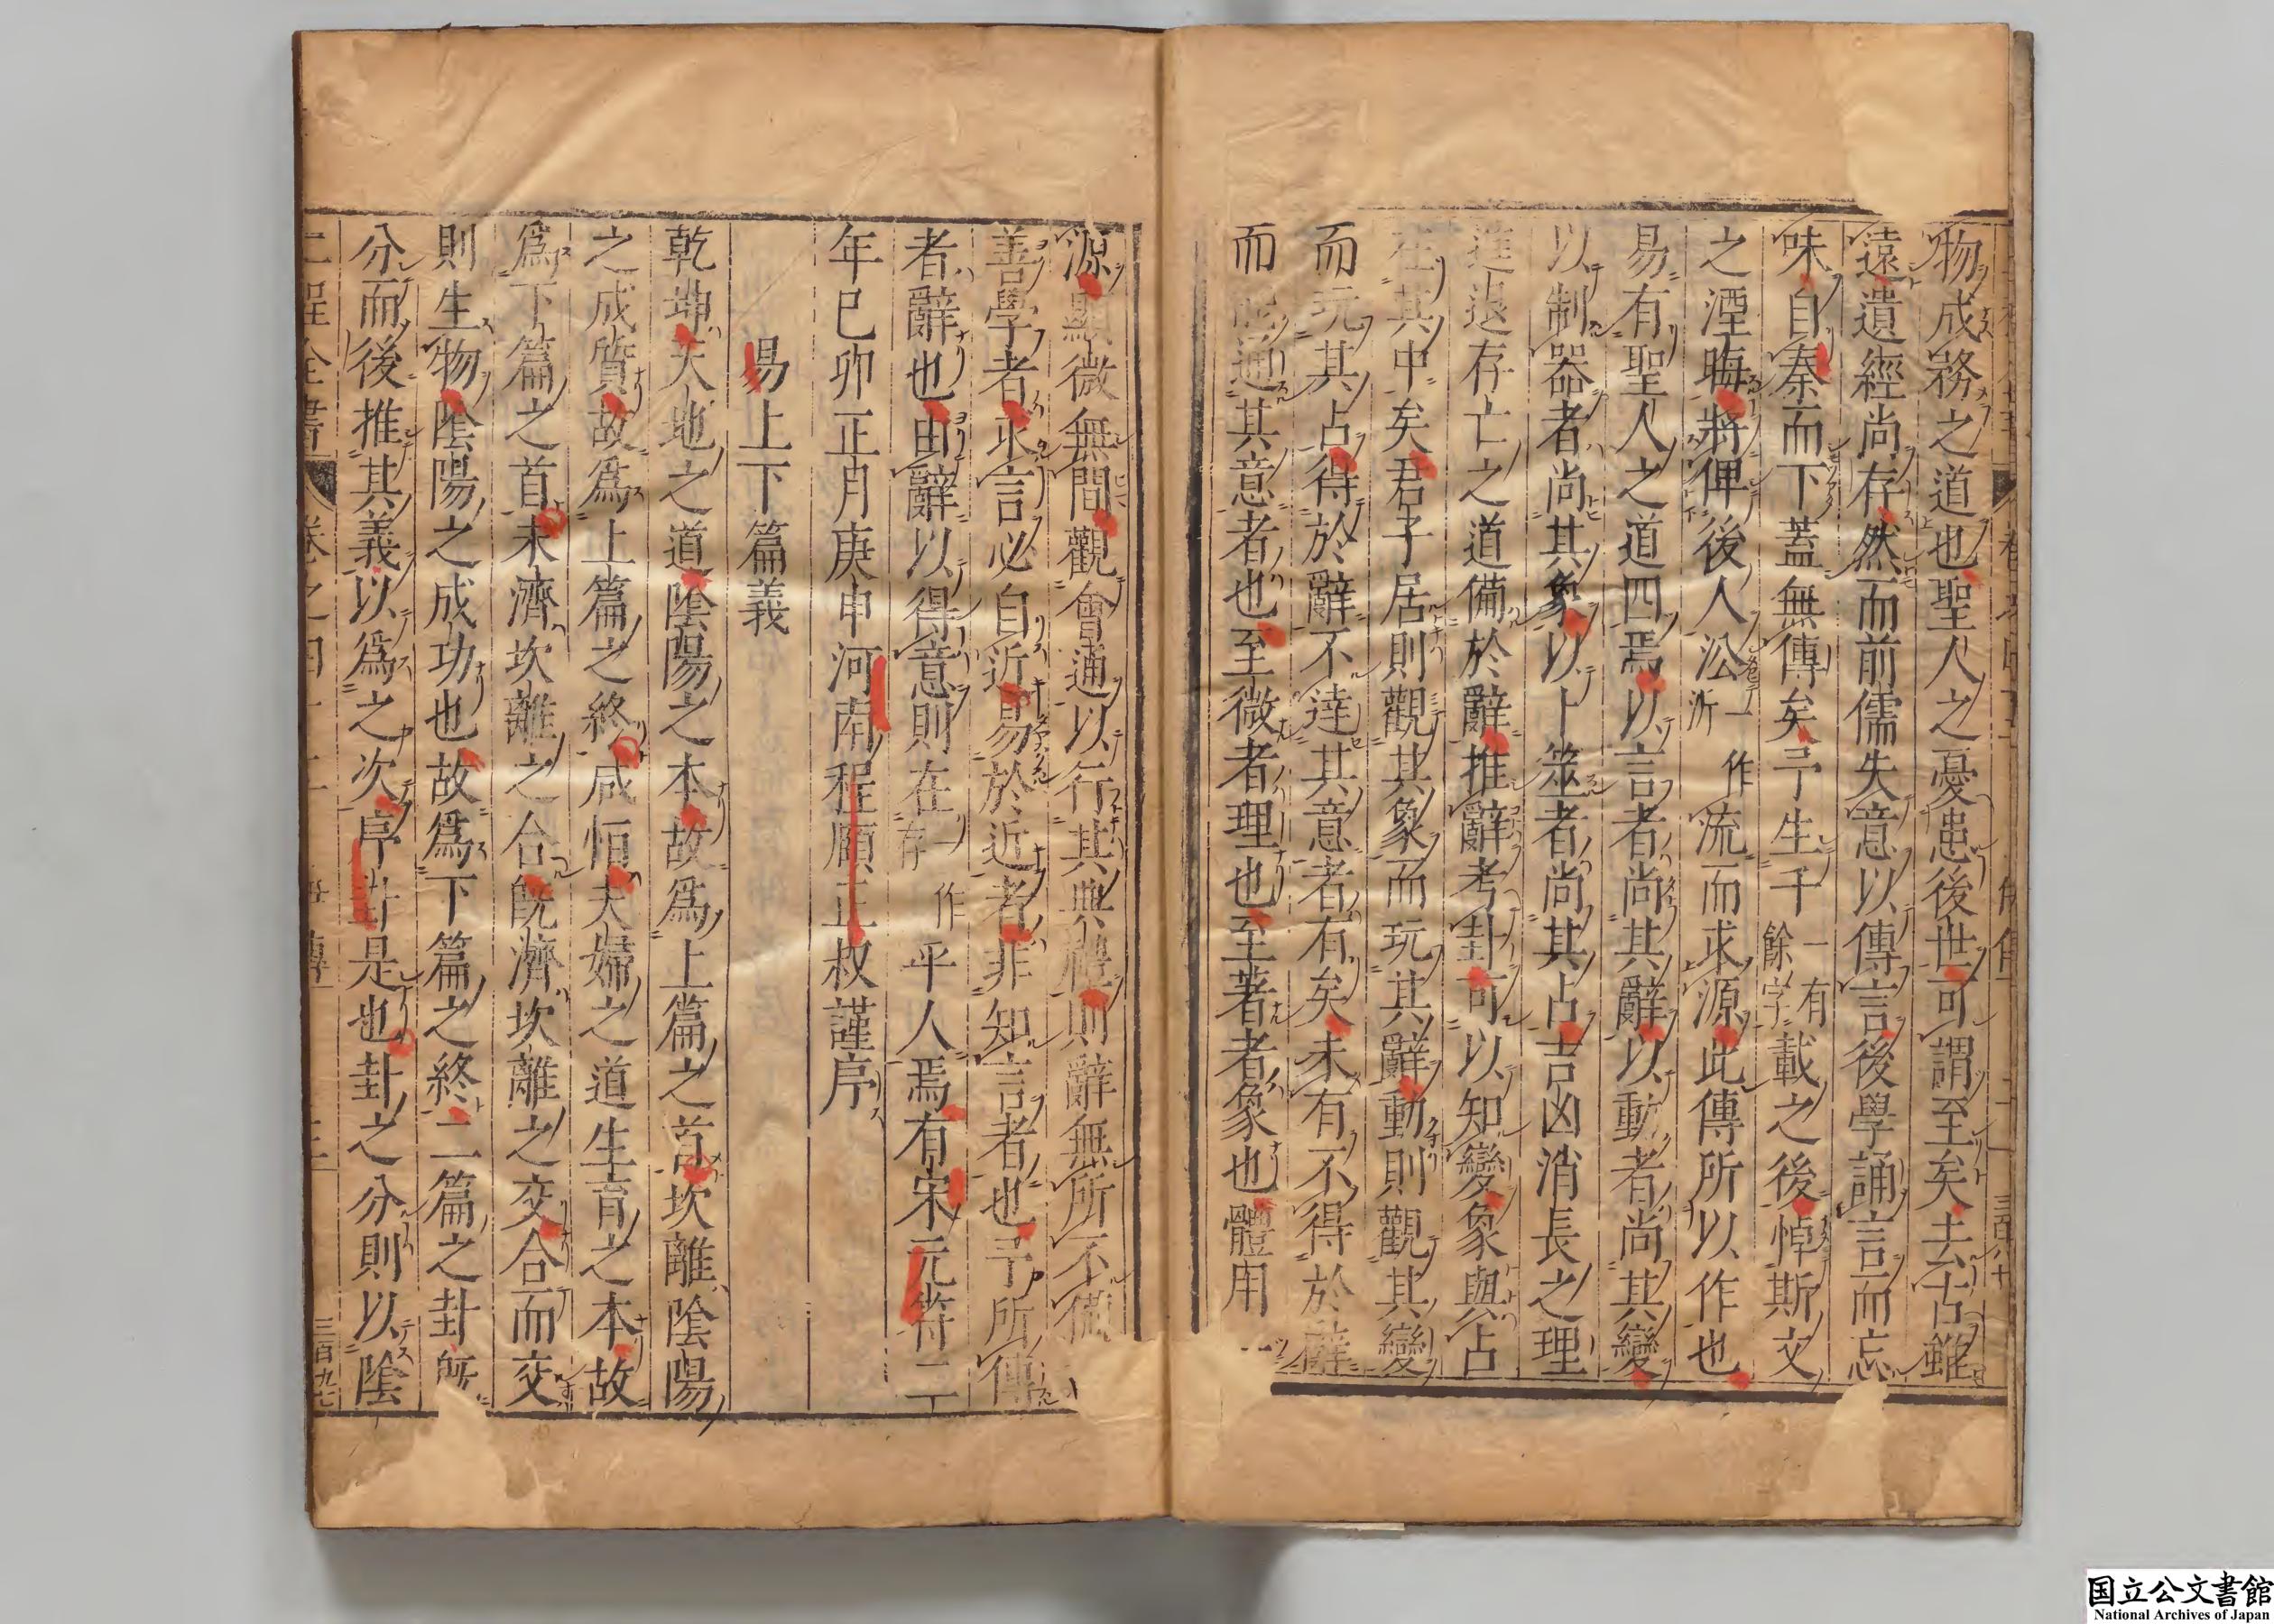 物成務之道也聖人之憂患後世可謂至矣去古雖
遠遺經尚存然而前儒失意以傳言後學誦言而忘
味自秦而下蓋無傳矣予生千一有餘字載之後悼斯文
之湮晦將俾後人㳂一作沂流而求源此傳所以作也
易有聖人之道四焉以言者尚其辭以動者尚其變
以制器者尚其象以卜筮者尚其占吉凶消長之理
進退存亡之道備於辭推辭考卦可以知變象與占
在其中矣君子居則觀其象而玩其辭動則觀其變
而玩其占得於辭不達其意者有矣未有不得於辭
而能通其意者也至微者理也至著者象也體用
源顯微無間觀會通以行其典禮則辭無所不備
善學者求言必自近易於近者非知言者也予所傳
者辭也由辭以得意則在一作存乎人焉有宋元符二
年己卯正月庚申河南程頤正叔謹序
易上下篇義
乾坤天地之道陰陽之本故爲上篇之首坎離陰陽
之成質故爲上篇之終咸恒夫婦之道生育之本故
爲下篇之首未濟坎離之合既濟坎離之交合而交
則生物陰陽之成功也故爲下篇之終二篇之卦既
分而後推其義以爲之次序卦是也卦之分則以陰
二程全書 卷之四十二 易傳一 三 三百九七
國立公文書館
National Archives of Japan